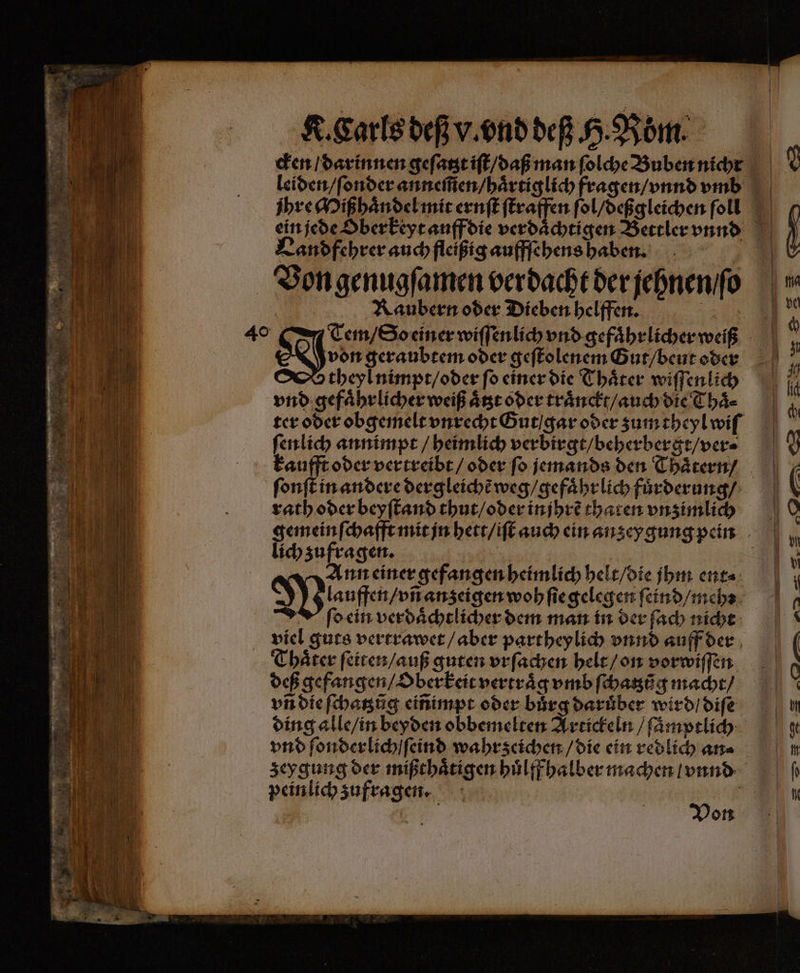 K. Carls deß v. vnd deß H. Röm.
cken / darinnen gesatzt ist / daß man solche Buben nicht
leiden / sonder annem̃en / hårtiglich fragen / vnnd vmb
jhre Mißhåndel mit ernst straffen sol / deßgleichen soll
ein jede Oberkeyt auff die verdåchtigen Bettler vnnd
Landfehrer auch fleißig auffsehens haben.
Von genugsamen verdacht der jehnen / so
Raubern oder Dieben helffen.
40 ITem / So einer wissenlich vnd gefåhrlicher weiß
von geraubtem oder gestolenem Gut / beut oder
theyl nimpt / oder so einer die Thåter wissenlich
vnd gefåhrlicher weiß åtzt oder trånckt / auch die Thå⸗
ter oder obgemelt vnrecht Gut / gar oder zum theyl wis
senlich annimpt / heimlich verbirgt / beherbergt / ver⸗
kaufft oder vertreibt / oder so jemands den Thåtern /
sonst in andere dergleichẽ weg / gefåhrlich fůrderung /
rath oder beystand thut / oder in jhrẽ thaten vnzimlich
gemeinschafft mit jn hett / ist auch ein anzeygung pein
lich zufragen.
MAnn einer gefangen heimlich helt / die jhm ent⸗
lauffen / vñ anzeigen woh sie gelegen seind / mehꝛ
so ein verdåchtlicher dem man in der sach nicht
viel guts vertrawet / aber partheylich vnnd auff der
Thåter seiten / auß guten vrsachen helt / on vorwissen
deß gefangen / Oberkeit vertråg vmb schatzũg macht /
vñ die schatzũg eiñimpt oder bůrg darůber wird / dise
ding alle / in beyden obbemelten Artickeln / såmptlich
vnd sonderlich / seind wahrzeichen / die ein redlich an⸗
zeygung der mißthåtigen hůlff halber machen / vnnd
peinlich zufragen.
Von